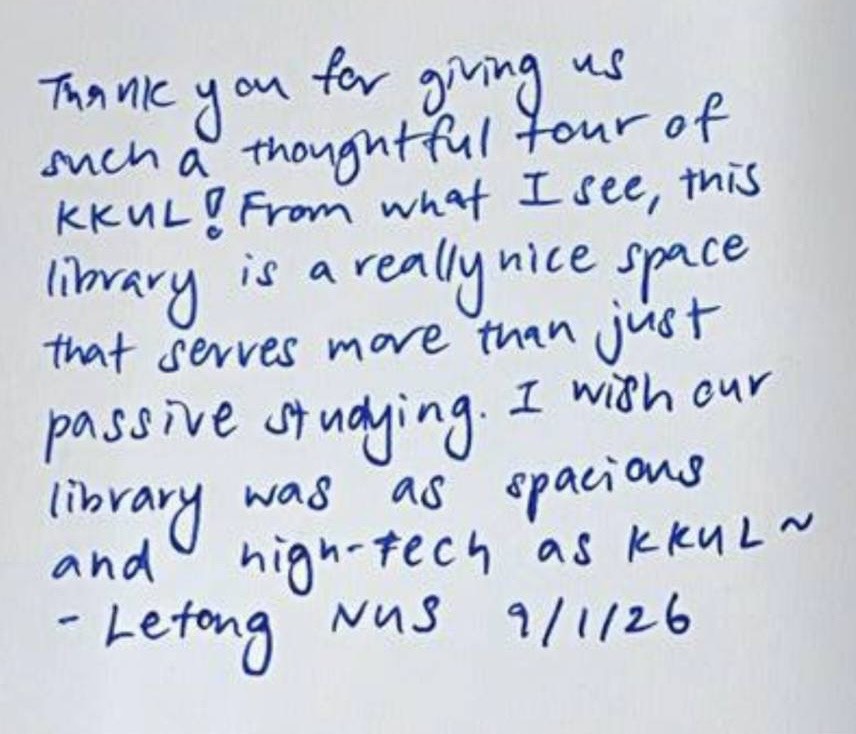 Thank you for giving us
such a thoughtful tour of
KKUL! From what I see, this
library is a really nice space
that serves more than just
passive studying. I wish our
library was as spacious
and high-tech as KKUL ~
- Letong NUS 9/1/26